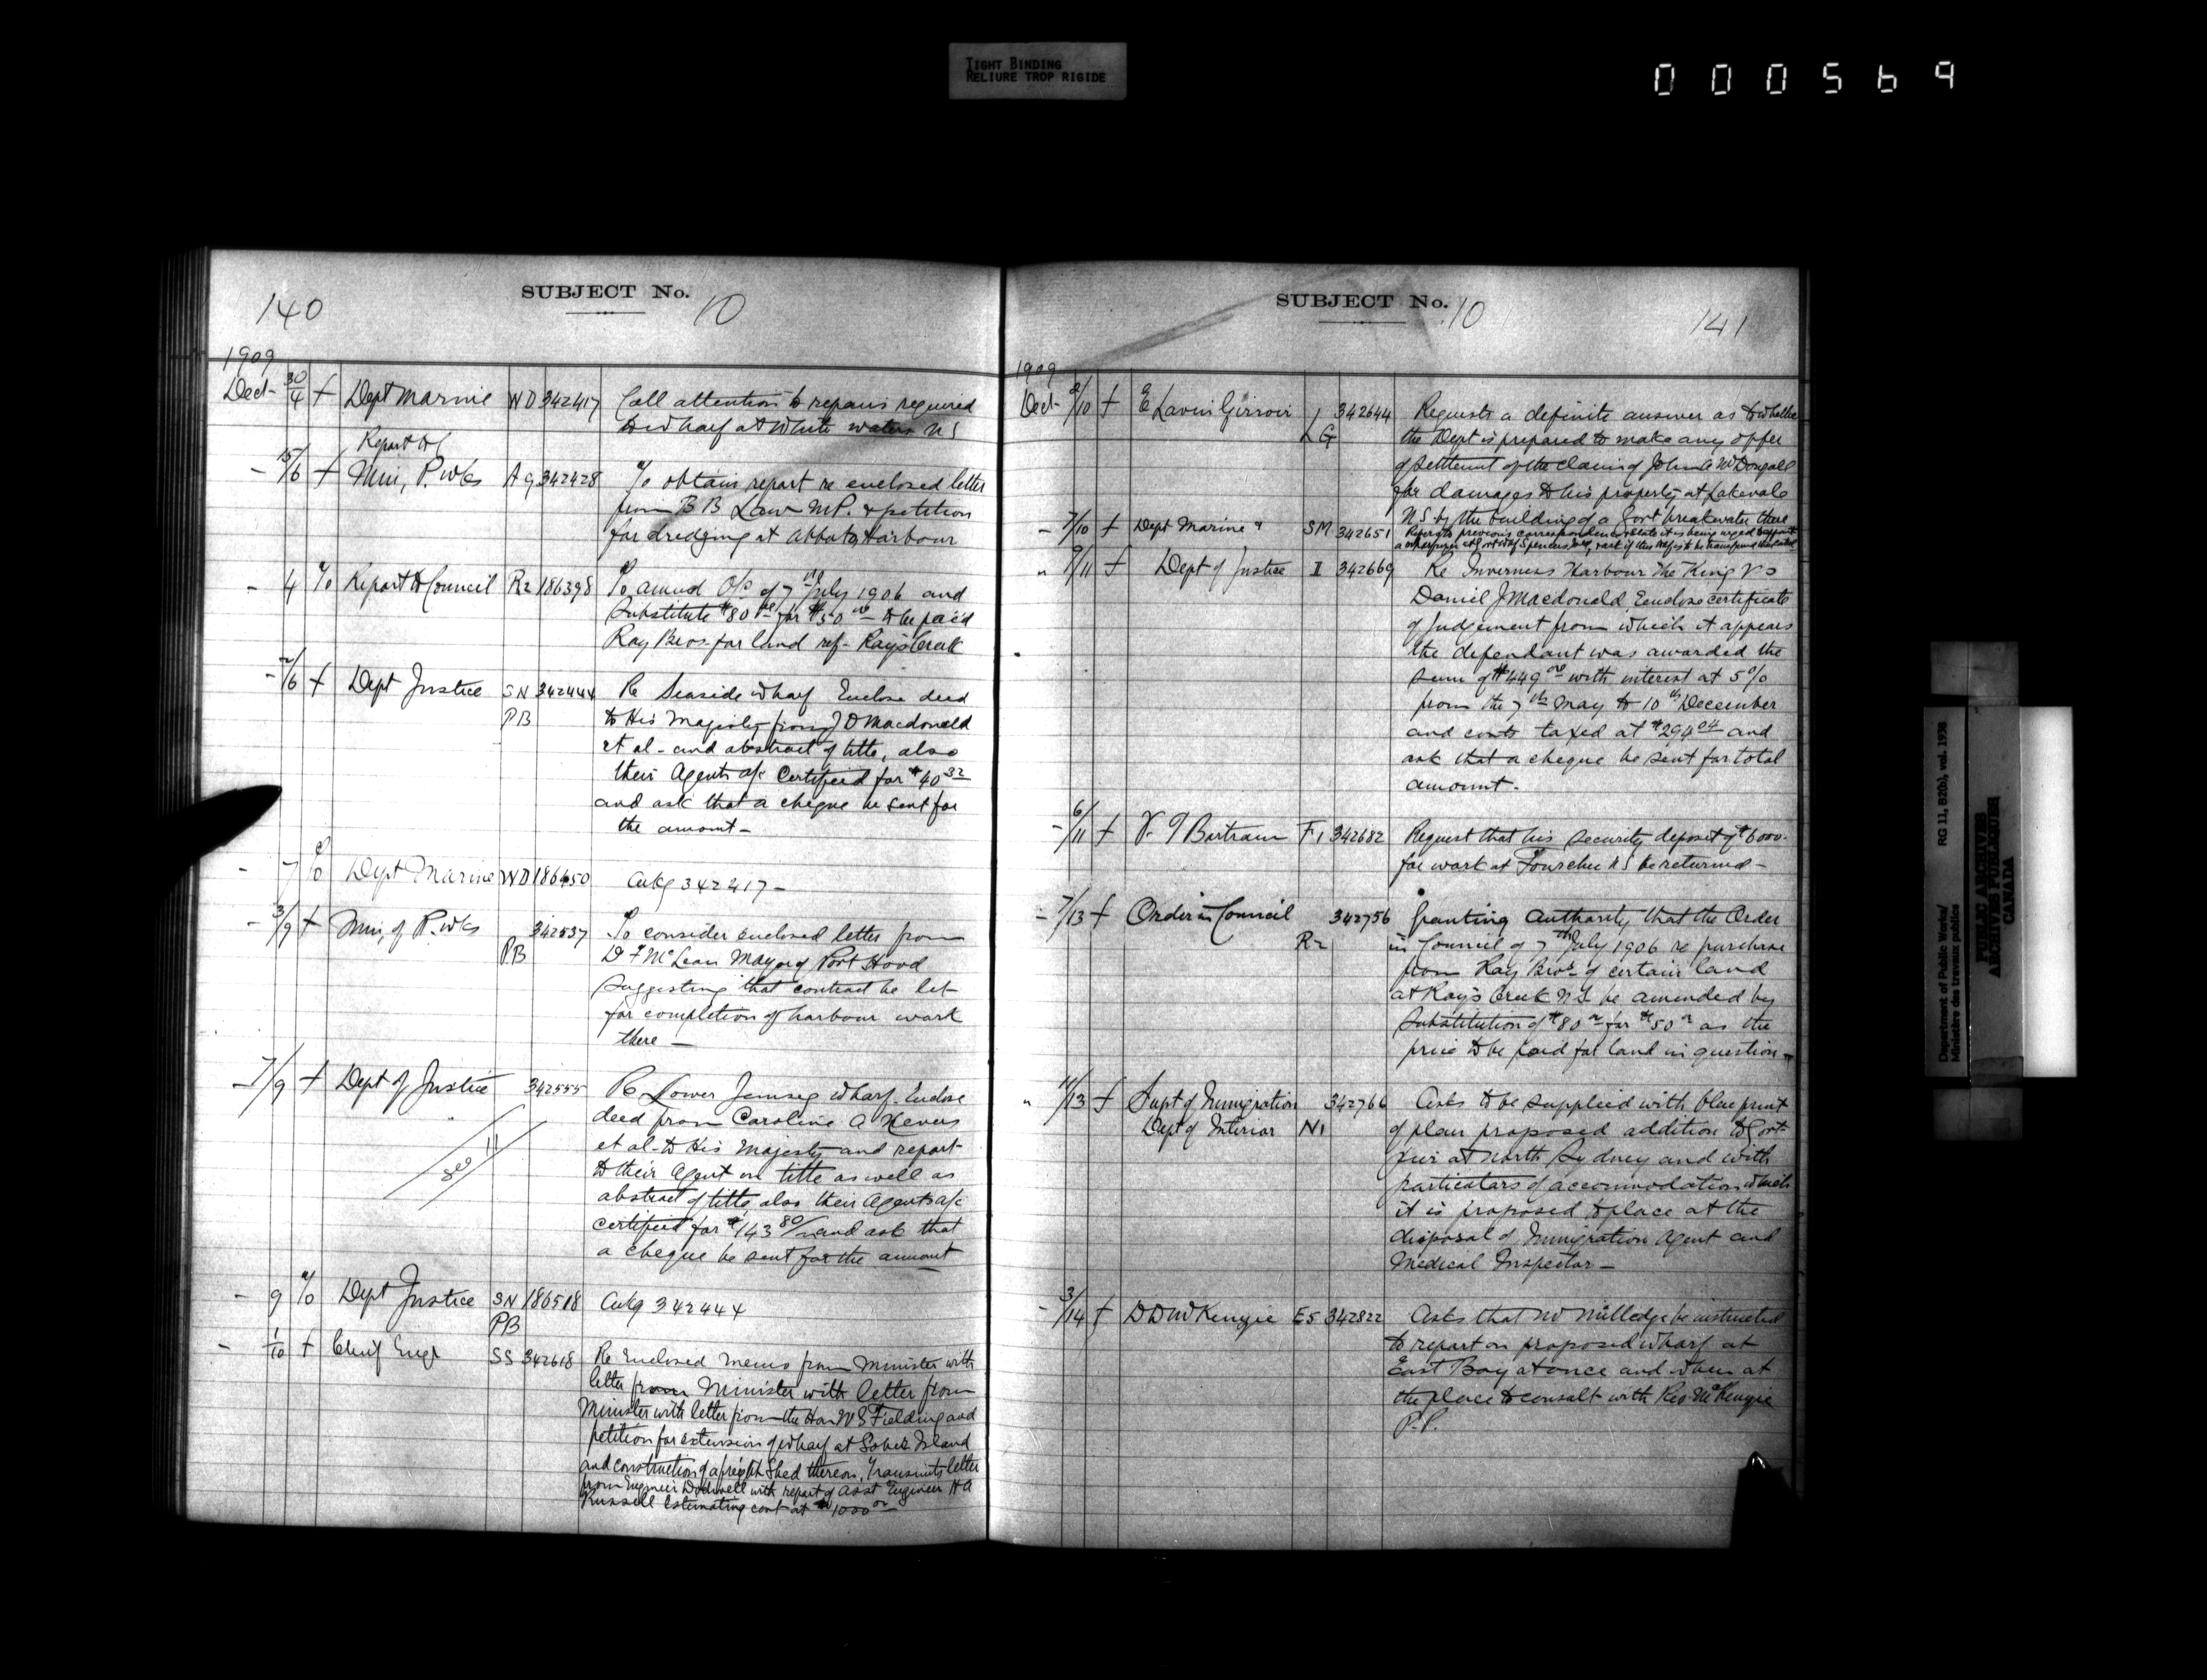 TIGHT BINDING
RELIURE TROP RIGIDE
000569
140
SUBJECT No. 10
1909
Dec 30/4 f Dept Marine WD 342417 Call attention to repairs required
to wharf at White Waters NS
Report to C
- 15/6 f Min, P. Wks Ag 342428 To obtain report re enclosed letter
from B B Law M.P. & petition
for dredging at Abbots Harbour
- 4 % Report to Council R2 186398 To amend O/C of 7th July 1906 and
Substitute $80 00 for $50 00 to be paid
Ray Bros. for land ref- Rays Creek
- 2/6 f Dept Justice SN 342444 Re Seaside wharf Enclose deed
PB to His Majesty from J D Macdonald
et al - and abstract of title, also
their Agents a/c Certified for $40 32
and ask that a cheque be sent for
the amount -
- 7 % Dept Marine WD 186450 Ackg 342417 -
- 3/9 f Min, of P. Wks 342537 To consider enclosed letter from
PB D F McLean Mayor of Port Hood
Suggesting that contract be let
for completion of harbour work
there -
- 7/9 f Dept of Justice 342555 Re Lower Jemseg wharf. Enclose
deed from Caroline A Nevers
et al- to His Majesty and report
to their Agent on title as well as
See 11
abstract of title, also their Agents a/c
certified for $143 80/ and ask that
a cheque be sent for the amount
- 9 % Dept Justice SN 186518 Ackg 342444
PB
- 1/10 f Chief Engr SS 342618 Re Enclosed memo from Minister with
letter from Minister with letter from
Minister with letter from the Hon W S Fielding and
petition for extension of wharf at Sober Island
and construction of a freight Shed thereon, Transmits letter
from Engineer Dodwell with report of Asst Engineer H A
Russell Estimating cost at $1000 00
SUBJECT No. 10
141
1909
Dec 2/10 f E Lavin Girroir 342644 Requests a definite answer as to whether
LG the Dept is prepared to make any offer
of settlement of the claim of John A McDougall
for damages to his property at Lakevale
N S by the building of a Govt breakwater there
- 7/10 f Dept Marine & SM 342651 Refers to previous correspondence
" 9/11 f Dept of Justice I 342669 Re Inverness Harbour The King vs
Daniel J Macdonald, Enclose certificate
of Judgement from which it appears
the defendant was awarded the
sum of $449 00 with interest at 5%
from the 7th May to 10th December
and costs taxed at $294 04 and
ask that a cheque be sent for total
amount.
- 6/11 f V. T Bartram F1 342682 Request that his security deposit of $6000.
for work at Fourchu NS be returned -
- 7/13 f Order in Council 342756 Granting Authority that the Order
R2 in Council of 7th July 1906 re purchase
from Ray Bros of certain land
at Ray's Creek N.S. be amended by
Substitution of $80 00 for $50 00 as the
price to be paid for land in question -
" 11/13 f Supt of Immigration 342766 Asks to be supplied with blue print
Dept of Interior N1 of plan proposed addition to Govt
pier at North Sydney and with
particulars of accommodation which
it is proposed to place at the
disposal of Immigration Agent and
Medical Inspector -
- 3/14 f D D McKenzie E5 342822 Asks that Mr Milledge be instructed
to report on proposed wharf at
East Bay at once and when at
the place to consult with Rev. McKenzie
P.P.
Department of Public Works/
Ministère des travaux publics
RG 11, B2(b), vol. 1938
PUBLIC ARCHIVES
ARCHIVES PUBLIQUES
CANADA